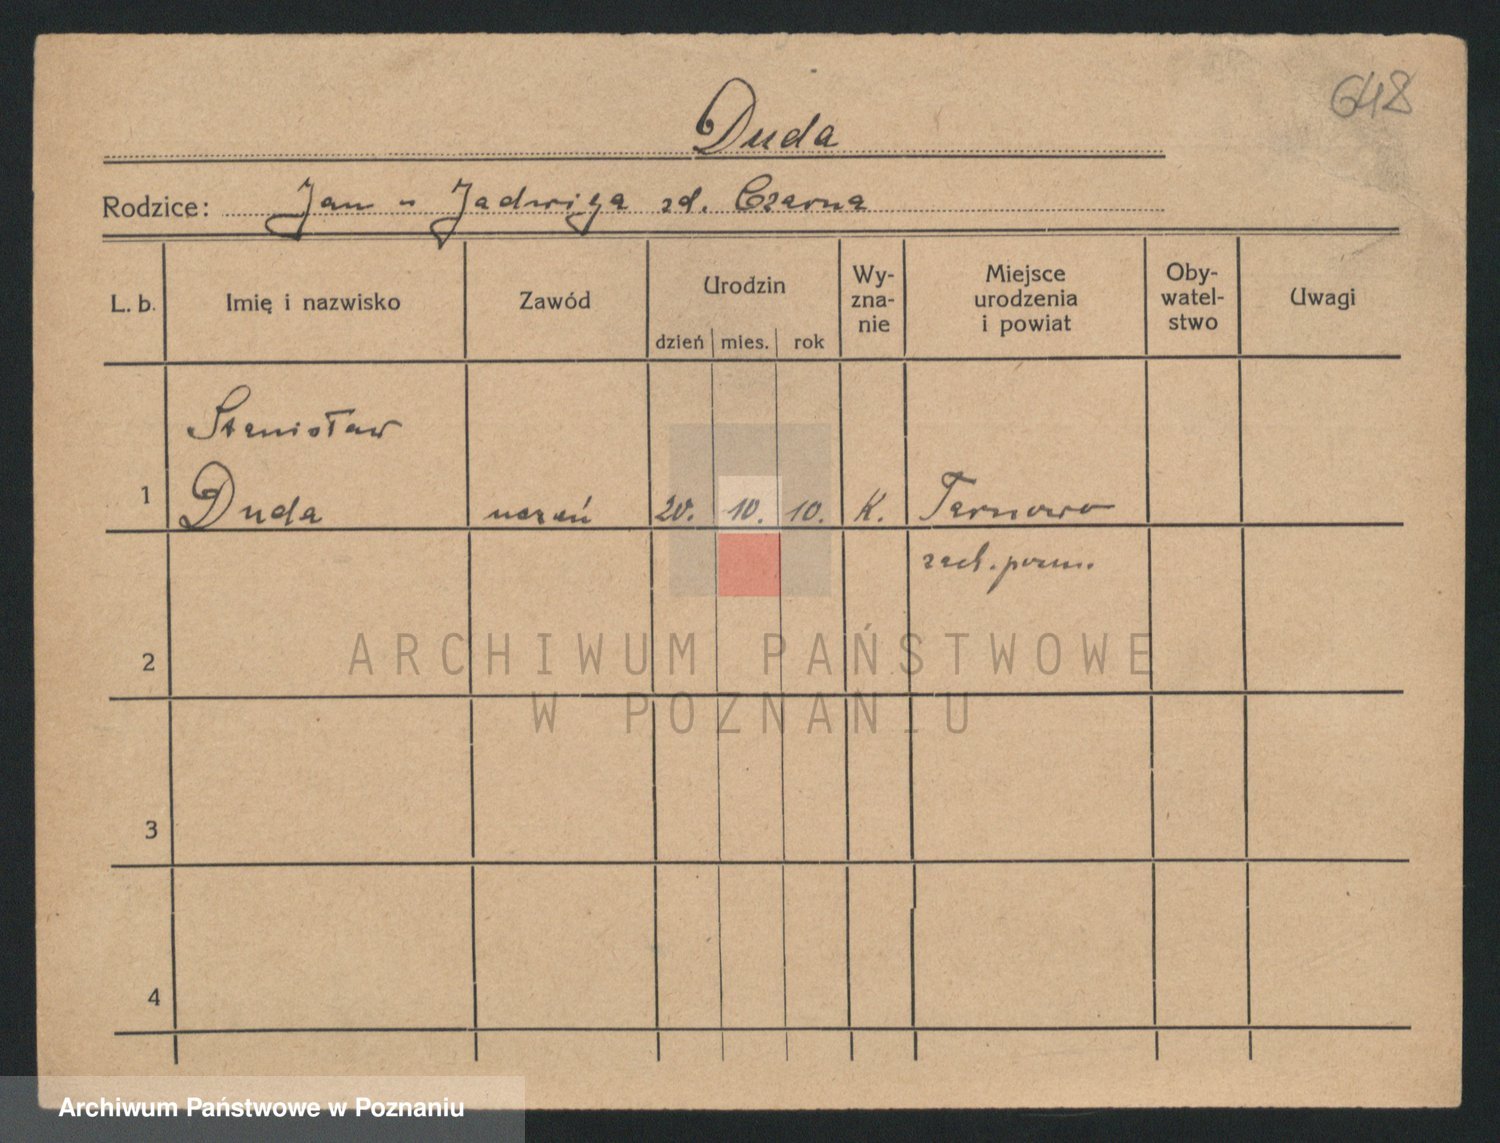 648
Duda
Rodzice: Jan – Jadwiga zd. Czarna
L. b. Imię i nazwisko Zawód Urodzin dzień mies. rok Wy-zna-nie Miejsce urodzenia i powiat Oby-watel-stwo Uwagi
Stanisław
1 Duda uczeń 20. 10. 10. K. Tarnowo
zach. pozn.
2
ARCHIWUM PAŃSTWOWE
W POZNANIU
3
4
Archiwum Państwowe w Poznaniu